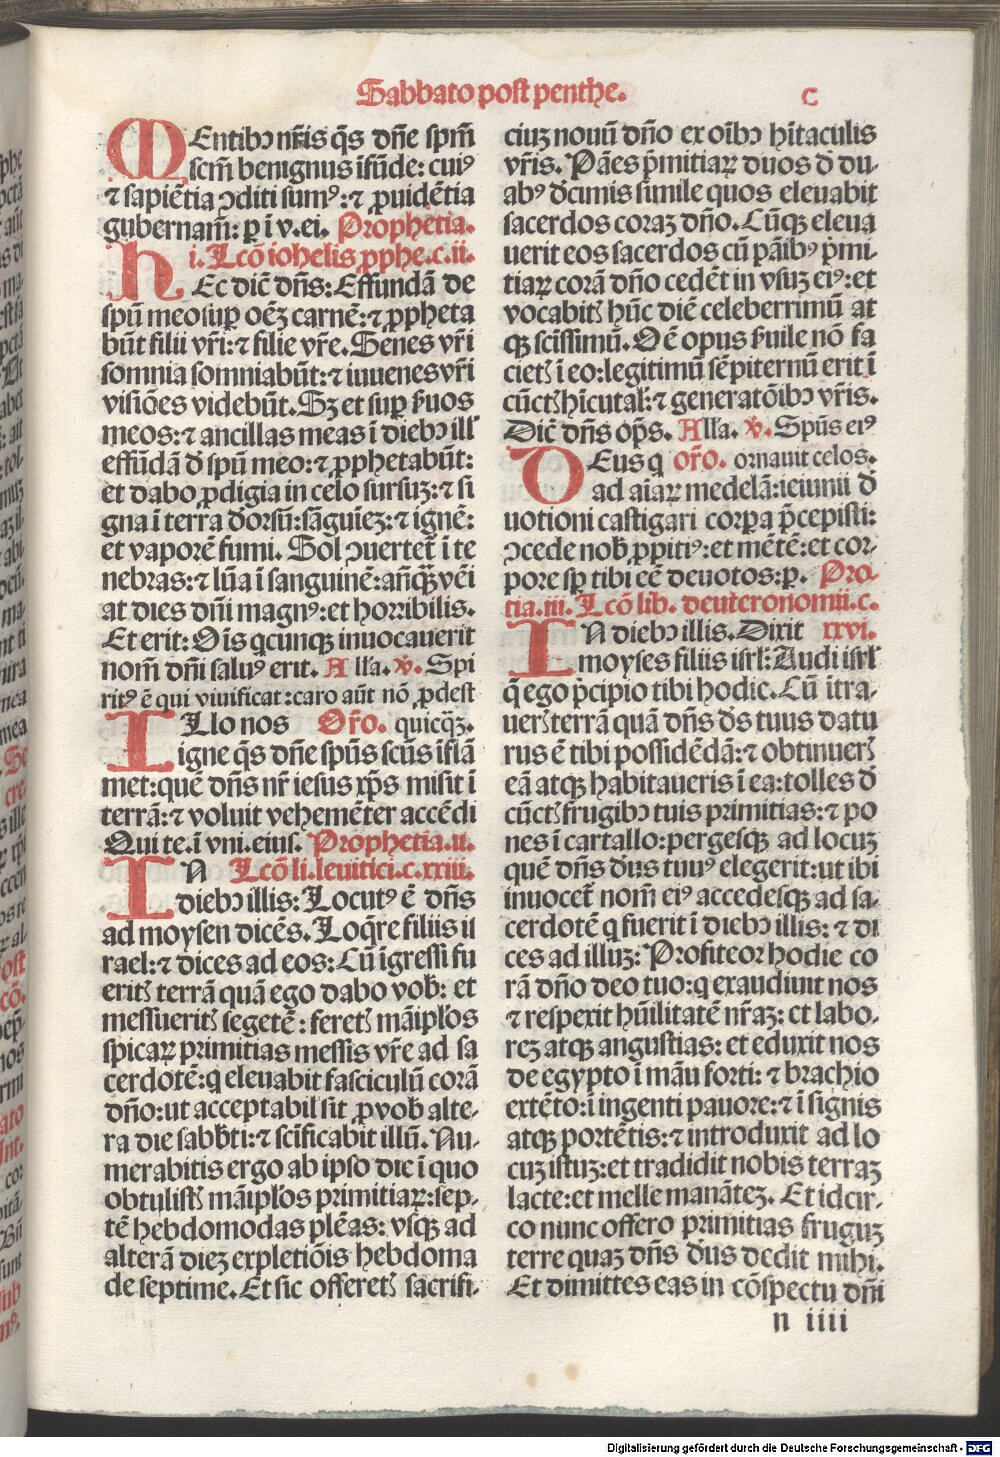 Sabbato post penthe.
C
MEntibꝰ nr̄is q̄s dn̄e spm̄
scm̄ benignus ĩfũde: cuiꝰ
⁊ sapiẽtia ꝯditi sumꝰ: ⁊ ꝓuidẽtia
gubernam̄: ꝑ ĩ v.ei. Prophetia.
i. Lcõ iohelis ꝓphe.c.ii.
hEc dic̄ dn̄s: Effundã de
spũ meo suꝑ oẽꝫ carnẽ: ⁊ ꝓpheta
bũt filii vr̄i: ⁊ filie vr̄e. Senes vr̄i
somnia somniabũt: ⁊ iuuenes vr̄i
visiões videbũt. Sꝫ et suꝑ ẜuos
meos: ⁊ ancillas meas ĩ diebꝰ ill̕
effũdã đ spũ meo: ⁊ ꝓphetabũt:
et dabo ꝓdigia in celo sursuꝫ: ⁊ si
gna ĩ terra đorsũ: sãguieꝫ: ⁊ ignẽ:
et vaporẽ fumi. Sol ꝯuertet̃ ĩ te
nebras: ⁊ lũa ĩ sanguinẽ: añq̃ꝫ vẽi
at dies dñi magnꝰ: et horribilis.
Et erit: Oĩs qcunqꝫ inuocauerit
nom̄ dñi saluꝰ erit. Alla. v̄. Spi
ritꝰ ẽ qui viuificat: caro aũt nõ ꝓdest
ILlo nos Or̄o. quicq̃ꝫ.
igne q̄s dñe spũs scũs ĩflã
met: quẽ dñs nr̄ iesus xp̄s misit ĩ
terrã: ⁊ voluit vehemẽter accẽdi
Qui te. ĩ vni. eius. Prophetia.ii.
IN Lcõ li. leuitici.c.xxiii.
diebꝰ illis: Locutꝰ ẽ dñs
ad moysen dicẽs. Loq̃re filiis is
rael: ⁊ dices ad eos: Cũ ĩgressi fu
eritꝭ terrã quã ego dabo vob̄: et
messueritꝭ segetẽ: feretꝭ mãipl̕os
spicaꝝ primitias messis vr̄e ad sa
cerdotẽ: q eleuabit fasciculũ corã
dño: ut acceptabil̕ sit ꝓ vob̄ alte-
ra die sabb̄ti: ⁊ scĩficabit illũ. Nu-
merabitis ergo ab ipso die ĩ quo
obtulistꝭ mãipl̕os primitiaꝝ: sep-
tẽ hebdomodas plẽas: vsqꝫ ad
alterã dieꝫ expletiõis hebdoma
de septime. Et sic offeretꝭ sacrifi-
ciuꝫ nouũ dño ex oĩbꝰ hĩtaculis
vr̄is. Pães p̄mitiaꝝ duos đ du-
abꝰ đcimis simile quos eleuabit
sacerdos coraꝫ dño. Cũqꝫ eleua
uerit eos sacerdos cũ pãibꝰ p̄mi-
tiaꝝ corã dño cedẽt in vsuꝫ eiꝰ: et
vocabitꝭ hũc diẽ celeberrimũ at
qꝫ scĩssimũ. Oẽ opus ẜuile nõ fa
cietꝭ ĩ eo: legitimũ sẽpiternũ erit ĩ
cũctꝭ hĩcutal̕: ⁊ generatõibꝰ vr̄is.
Dic̄ dñs op̄s. Alla. v̄. Spũs eiꝰ
DEus q or̄o. ornauit celos.
ad aĩaꝝ medelã: ieiunii đ
uotioni castigari corꝑa p̄cepisti:
ꝯcede nob̄ ꝓpitiꝰ: et mẽtẽ: et cor-
pore sꝑ tibi eẽ deuotos: ꝑ. Pro-
tia.iii. Lcõ lib. deutronomii.c.
IN diebꝰ illis. Dixit xxvi.
moyses filiis isrl̕: Audi isrl̕
q̃ ego p̄cipio tibi hodie. Cũ ĩtra-
uerꝭ terrã quã dñs đs tuus datu
rus ẽ tibi possidẽdã: ⁊ obtinuerꝭ
eã atqꝫ habitaueris ĩ ea: tolles đ
cũctꝭ frugibꝰ tuis primitias: ⁊ po
nes ĩ cartallo: pergesqꝫ ad locuꝫ
quẽ dñs đus tuuꝰ elegerit: ut ibi
inuocet̃ nom̄ eiꝰ accedesqꝫ ad sa-
cerdotẽ q fuerit ĩ diebꝰ illis: ⁊ di
ces ad illuꝫ: Profiteor hodie co
rã dño deo tuo: q exaudiuit nos
⁊ respexit hũilitatẽ nr̄aꝫ: et labo-
reꝫ atqꝫ angustias: et eduxit nos
de egypto ĩ mãu forti: ⁊ brachio
extẽto: ĩ ingenti pauore: ⁊ ĩ signis
atqꝫ portẽtis: ⁊ introduxit ad lo
cuꝫ istuꝫ: et tradidit nobis terraꝫ
lacte: et melle manãteꝫ. Et idcir-
co nunc offero primitias fruguꝫ
terre quaꝫ dñs đus dedit mihi.
Et dimittes eas in cõspectu dñi
n iiii
Digitalisierung gefördert durch die Deutsche Forschungsgemeinschaft - DFG